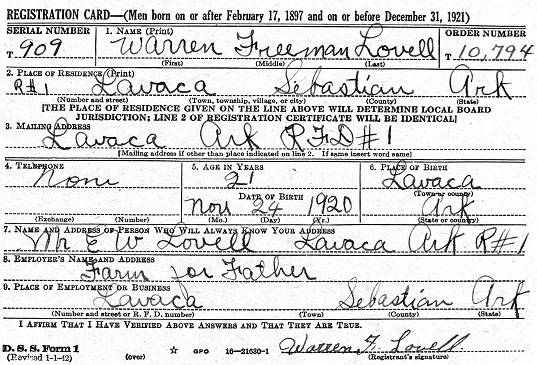 REGISTRATION CARD—(Men born on or after February 17, 1897 and on or before December 31, 1921)
SERIAL NUMBER 1. NAME (Print) ORDER NUMBER
T 909 Warren Freeman Lovell T 10,794
(First) (Middle) (Last)
2. PLACE OF RESIDENCE (Print)
R#1 Lavaca Sebastian Ark
(Number and street) (Town, township, village, or city) (County) (State)
[THE PLACE OF RESIDENCE GIVEN ON THE LINE ABOVE WILL DETERMINE LOCAL BOARD
JURISDICTION; LINE 2 OF REGISTRATION CERTIFICATE WILL BE IDENTICAL]
3. MAILING ADDRESS
Lavaca Ark RFD #1
[Mailing address if other than place indicated on line 2. If same insert word same]
4. TELEPHONE 5. AGE IN YEARS 6. PLACE OF BIRTH
None 21 Lavaca
DATE OF BIRTH (Town or county)
Nov 24 1920 Ark
(Exchange) (Number) (Mo.) (Day) (Yr.) (State or country)
7. NAME AND ADDRESS OF PERSON WHO WILL ALWAYS KNOW YOUR ADDRESS
Mr E W Lovell Lavaca Ark R#1
8. EMPLOYER'S NAME AND ADDRESS
Farm for Father
9. PLACE OF EMPLOYMENT OR BUSINESS
Lavaca Sebastian Ark
(Number and street or R. F. D. number) (Town) (County) (State)
I AFFIRM THAT I HAVE VERIFIED ABOVE ANSWERS AND THAT THEY ARE TRUE.
D. S. S. Form 1
(Revised 1-1-42) (over) ☆ GPO 16—21630-1 Warren F. Lovell
(Registrant's signature)